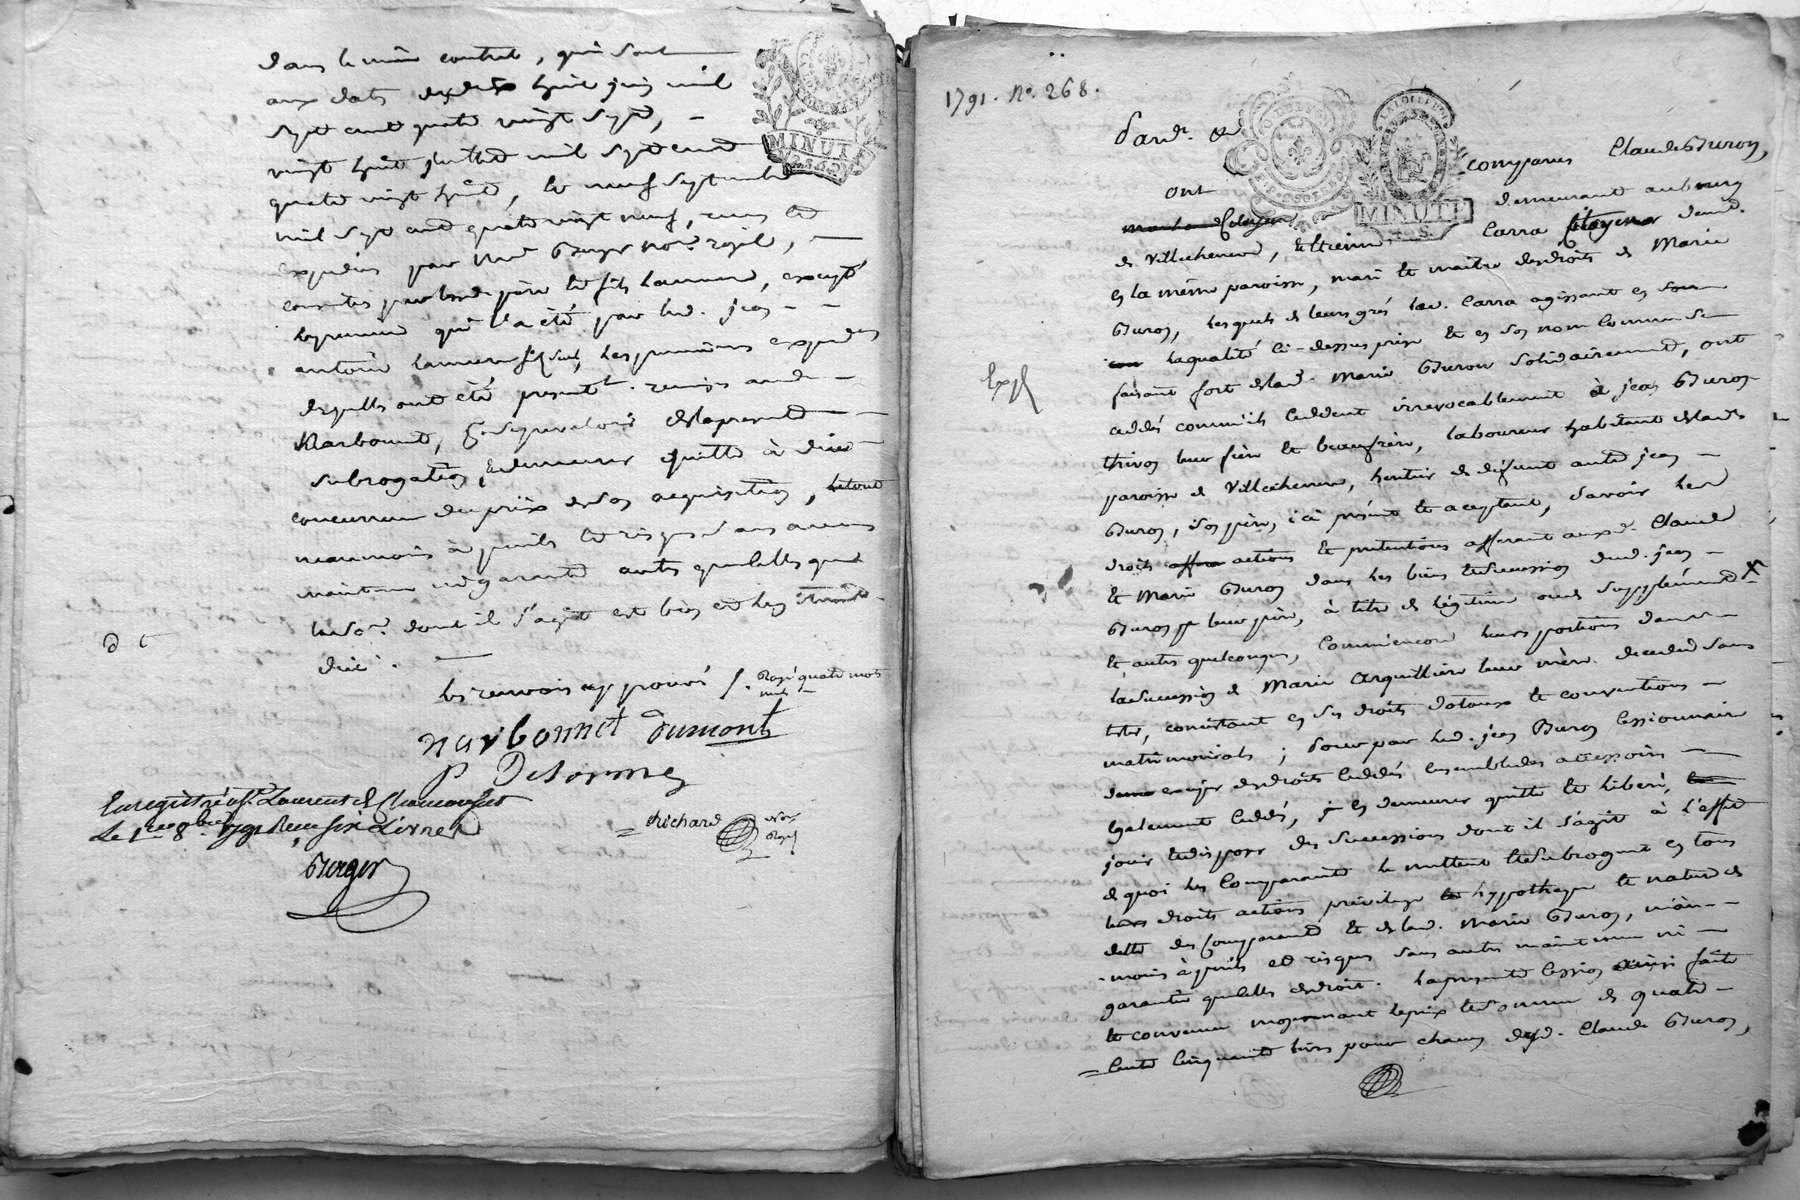 dans le même contrat, qui sont
aux dates dix huit juin mil
sept cent quatre vingt sept,
vingt huit juillet mil sept cent
quatre vingt huit, et neuf septembre
mil sept cent quatre vingt neuf, reçus et
expédiés par Me Berger nore. royal,
père et fils excepté
le premier qui l'a été par led. jean
antoine les premières expéditions
desquelles ont été présentt. remises aud.
Narbonnet, de la présente
subrogation, demeurer quitte à due
concurrence du prix de son acquisition, le tout
néanmoins à périls et risques sans aucune
maintenue ni garantie autre que celle que
la so.e dont il s'agit est bien et légitimt.
due.
les renvois approuvés /. Rayé quatre mots
nuls
narbonnet Dumont
P Delorme
Enregistré à St. Laurent de Chamousset
Le 1er 8bre 1791 Reçu six Livres
Richard Nore
Royal
Berger
MINUTE
1791. No. 268.
Pardt. &
MINUTE
4. S.
ont comparus Claude Buron,
demeurant au bourg
de Villecheneve, Etienne Carra citoyen demt.
en la même paroisse, mari et maitre des droits de Marie
Buron, lesquels de leurs grés led. Carra agissant en
la qualité ci-dessus prise et en son nom comme se
faisant fort de lad. Marie Buron solidairement, ont
cédés comm'ils cèdent irrévocablement à jean Buron
Expé
leur frère et beaufrère, laboureur habitant de lade.
paroisse de Villecheneve, héritier de défunt autre jean
Buron, son père, ici présent et acceptant, savoir les
droits actions et prétentions afférant auxd. Claude
et Marie Buron dans les biens et succession dud. jean
Buron leur père, à titre de légitime ou de supplément X
et autres quelconques, comm'encore leurs portions dans
la succession de Marie Arquilliere leur mère décédée sans
tester, consistant en ses droits dotaux et conventions
matrimoniales ; pour par led. jean Buron cessionnaire
exiger des droits cédés, ensemble des accessoires
également cédés, en demeurer quitte et libéré,
jouir et disposer des successions dont il s'agit à l'effet
de quoi les comparants le mettent et subrogent en tous
leurs droits actions privilege et hypotheque et nature de
dette des comparants et de lad. Marie Buron, néan-
-moins à périls et risques sans autre maintenue ni
garantie que celle de droit. La présente cession ainsi faite
et convenue moyennant le prix et somme de quatre
cents cinquante livres pour chacun desd. Claude Buron,